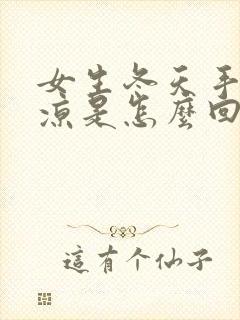 女生冬天手
凉是怎麼回
這有个仙子